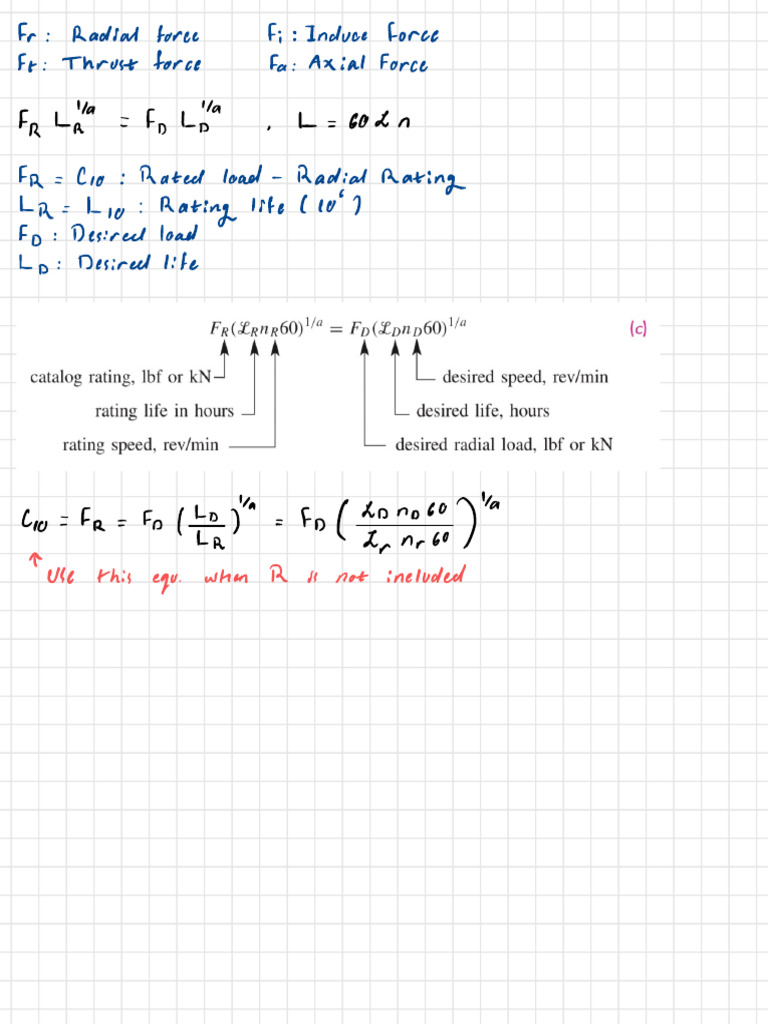 Fr : Radial force Fi : Induce Force
Ft : Thrust force Fa : Axial Force
F_R L_R^{1/a} = F_D L_D^{1/a} , L = 60 ℒ n
F_R = C_10 : Rated load - Radial Rating
L_R = L_10 : Rating life (10^6)
F_D : Desired load
L_D : Desired life
F_R(ℒ_R n_R 60)^{1/a} = F_D(ℒ_D n_D 60)^{1/a} (c)
catalog rating, lbf or kN desired speed, rev/min
rating life in hours desired life, hours
rating speed, rev/min desired radial load, lbf or kN
C_10 = F_R = F_D (L_D / L_R)^{1/a} = F_D (ℒ_D n_D 60 / ℒ_r n_r 60)^{1/a}
↑ Use this equ. when R is not included